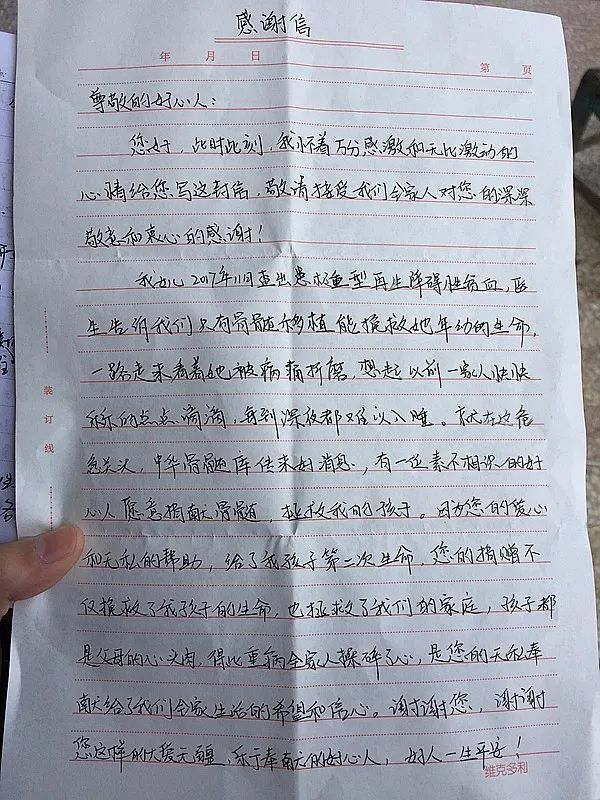 感谢信
年 月 日 第 页
尊敬的好心人：
您好，此时此刻，我怀着万分感激和无比激动的
心情给您写这封信，敬请接受我们全家人对您的深深
敬意和衷心的感谢！
我女儿2017年11月查出患极重型再生障碍性贫血，医
生告诉我们只有骨髓移植能挽救她年幼的生命，
一路走来看着她被病痛折磨，想起以前一家人快快
乐乐的点点滴滴，每到深夜都难以入睡。就在这危
急关头，中华骨髓库传来好消息，有一位素不相识的好
心人愿意捐献骨髓，拯救我的孩子。因为您的爱心
和无私的帮助，给了我孩子第二次生命，您的捐赠不
仅挽救了我孩子的生命，也拯救了我们的家庭，孩子都
是父母的心头肉，得此重病全家人操碎了心，是您的无私奉
献给了我们全家生活的希望和信心。谢谢您，谢谢
您这样的大爱无疆，乐于奉献的好心人，好人一生平安！
装订线
维克多利